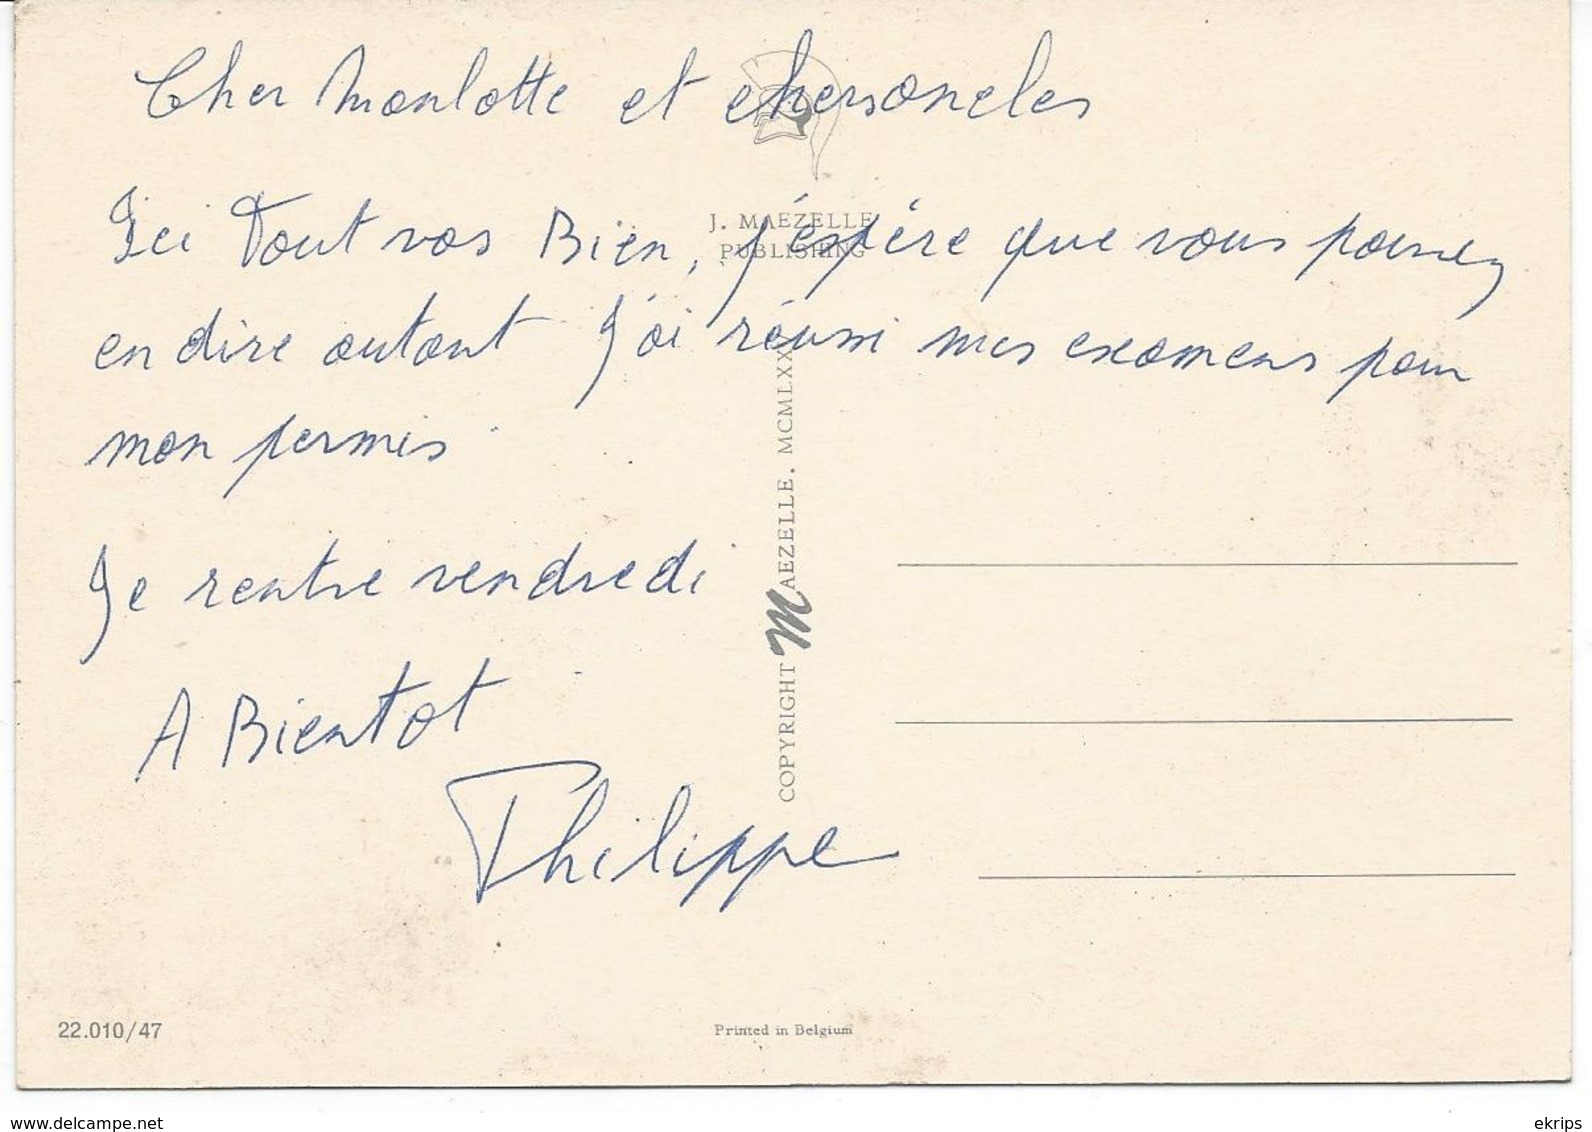 Cher Monlotte et chersoncles
Ici Tout vas Bien, j'éspère que vous pouvez
en dire autant J'ai réussi mes examens pour
mon permis.
Je rentre vendredi
A Bientot
Philippe
J. MAEZELLE
PUBLISHING
COPYRIGHT MAEZELLE. MCMLXX
22.010/47
Printed in Belgium
www.delcampe.net
ekrips